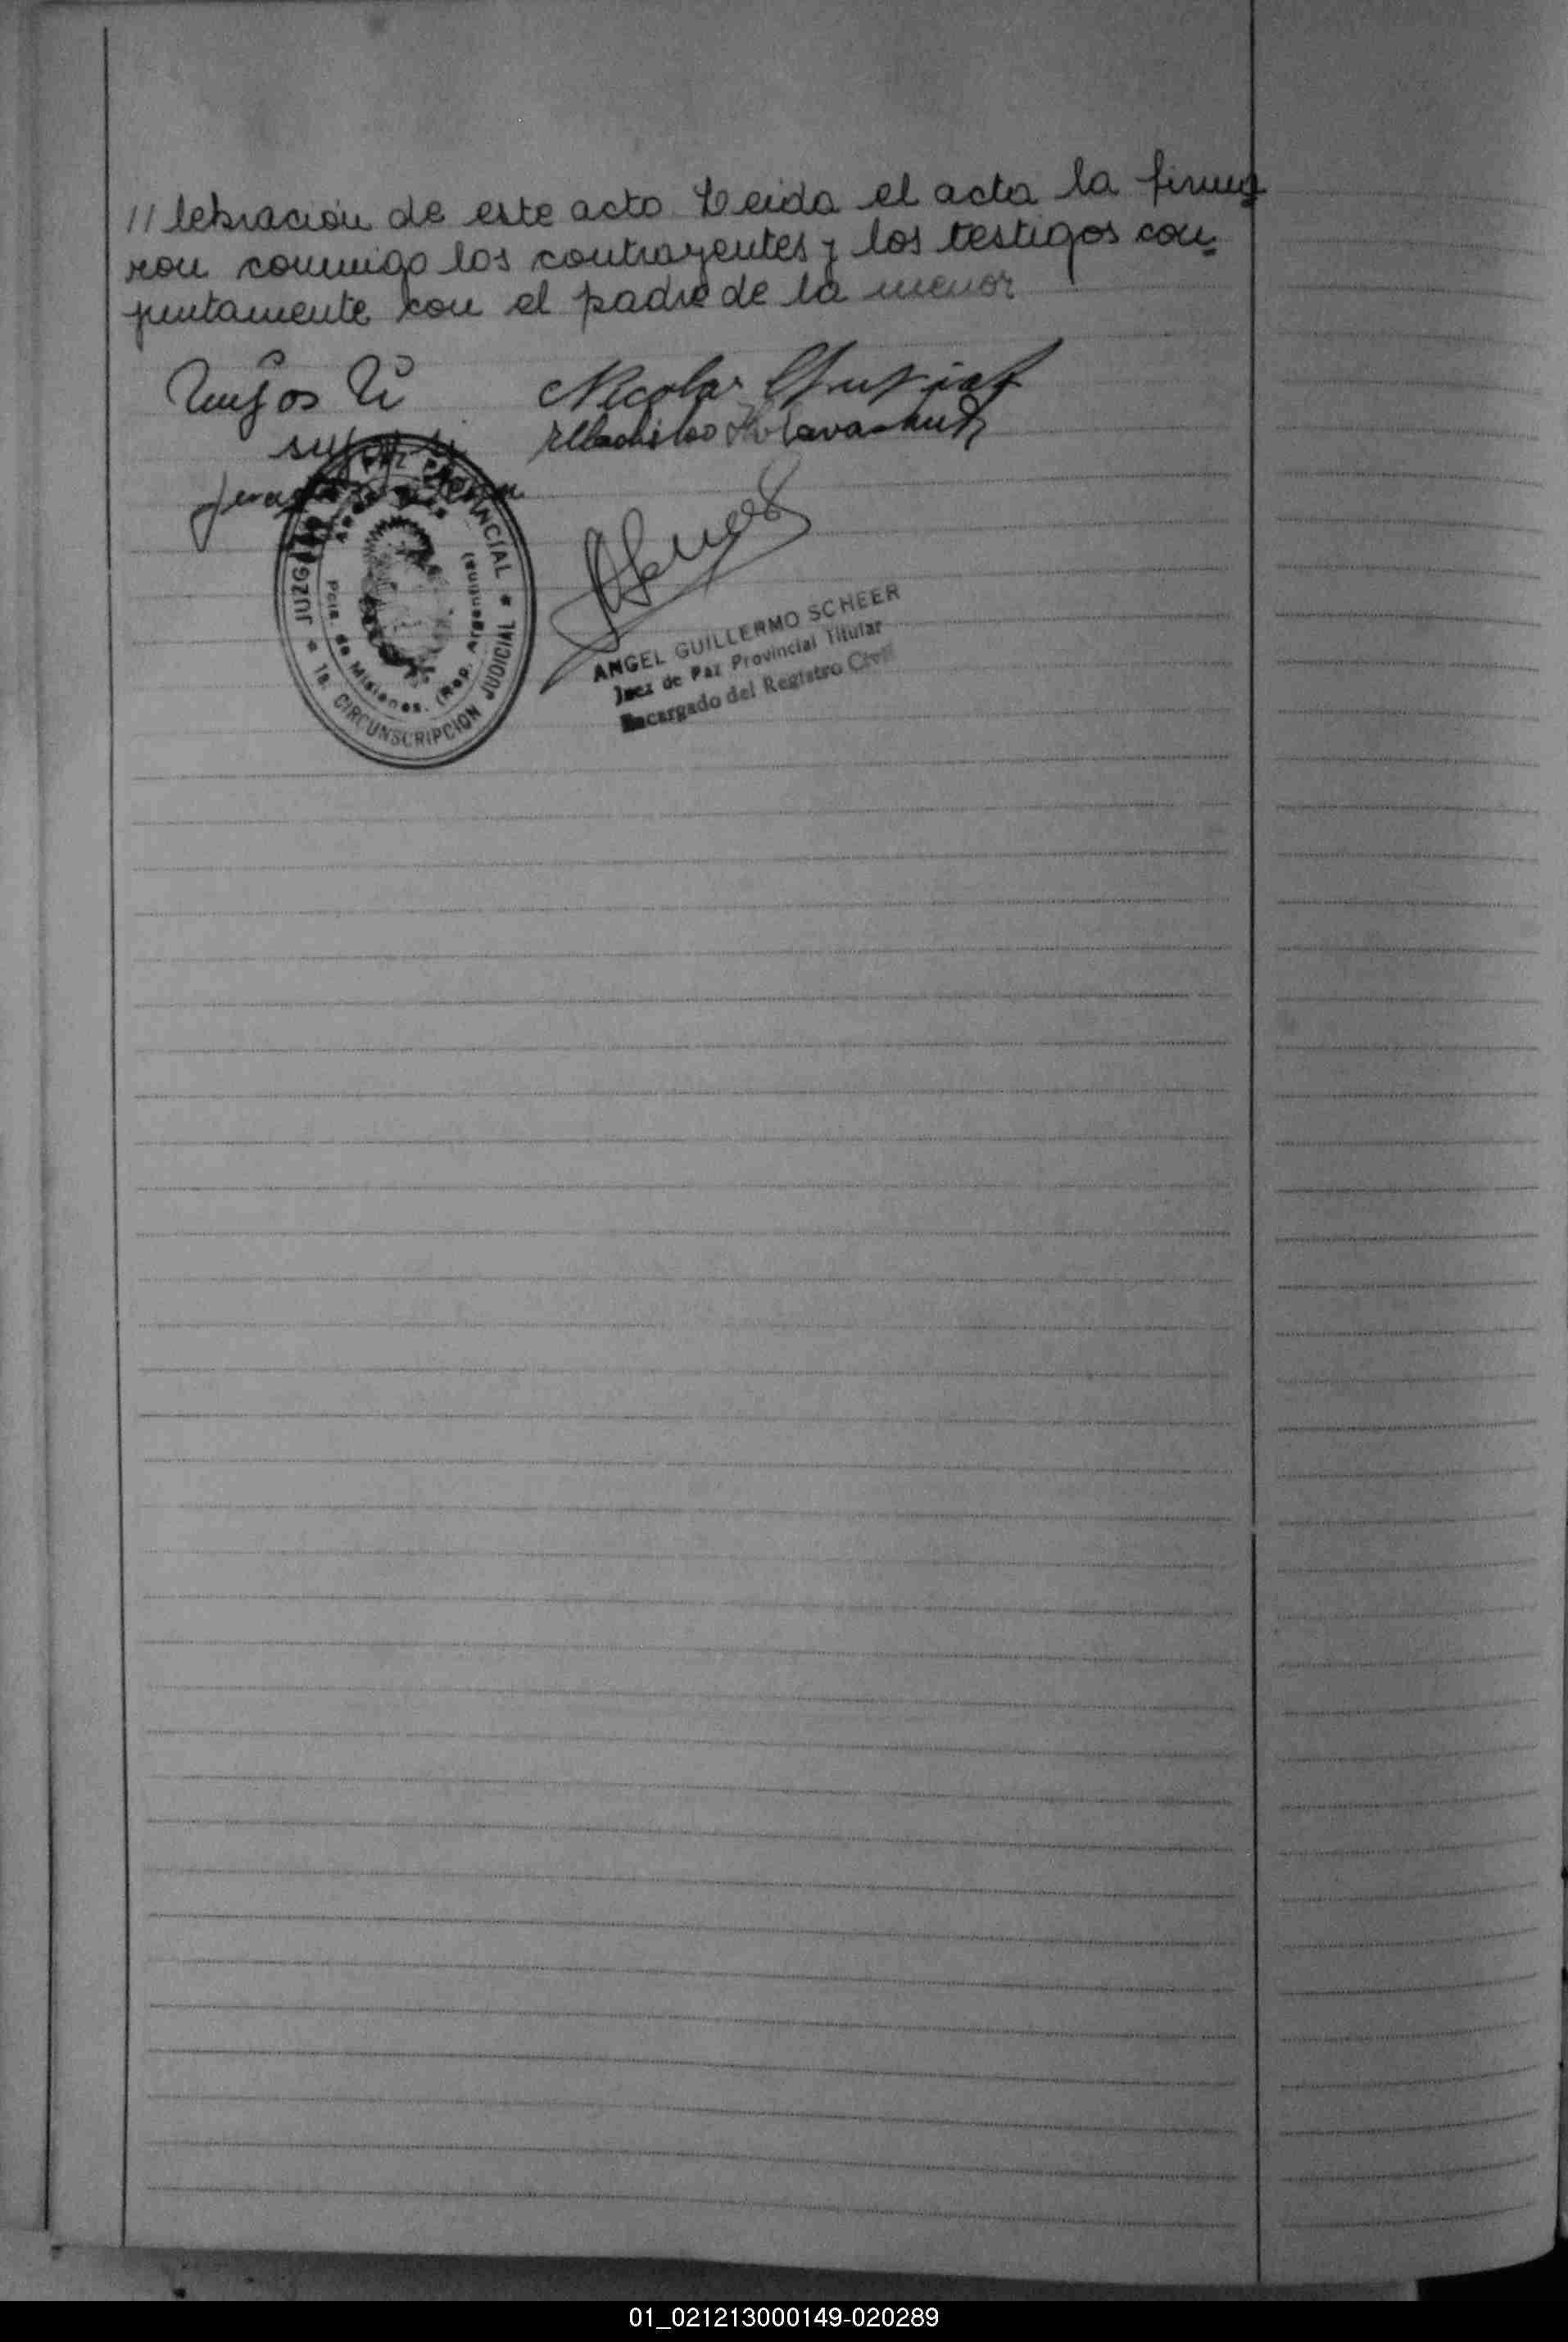 // lebración de este acto. Leida el acta la firma
ron conmigo los contrayentes y los testigos con=
juntamente con el padre de la menor
Nicolas
JUZGADO DE PAZ PROVINCIAL
Pcia. de Misiones. (Rep. Argentina)
1a. CIRCUNSCRIPCION JUDICIAL
ANGEL GUILLERMO SCHEER
Juez de Paz Provincial Titular
Encargado del Registro Civil
01_021213000149-020289